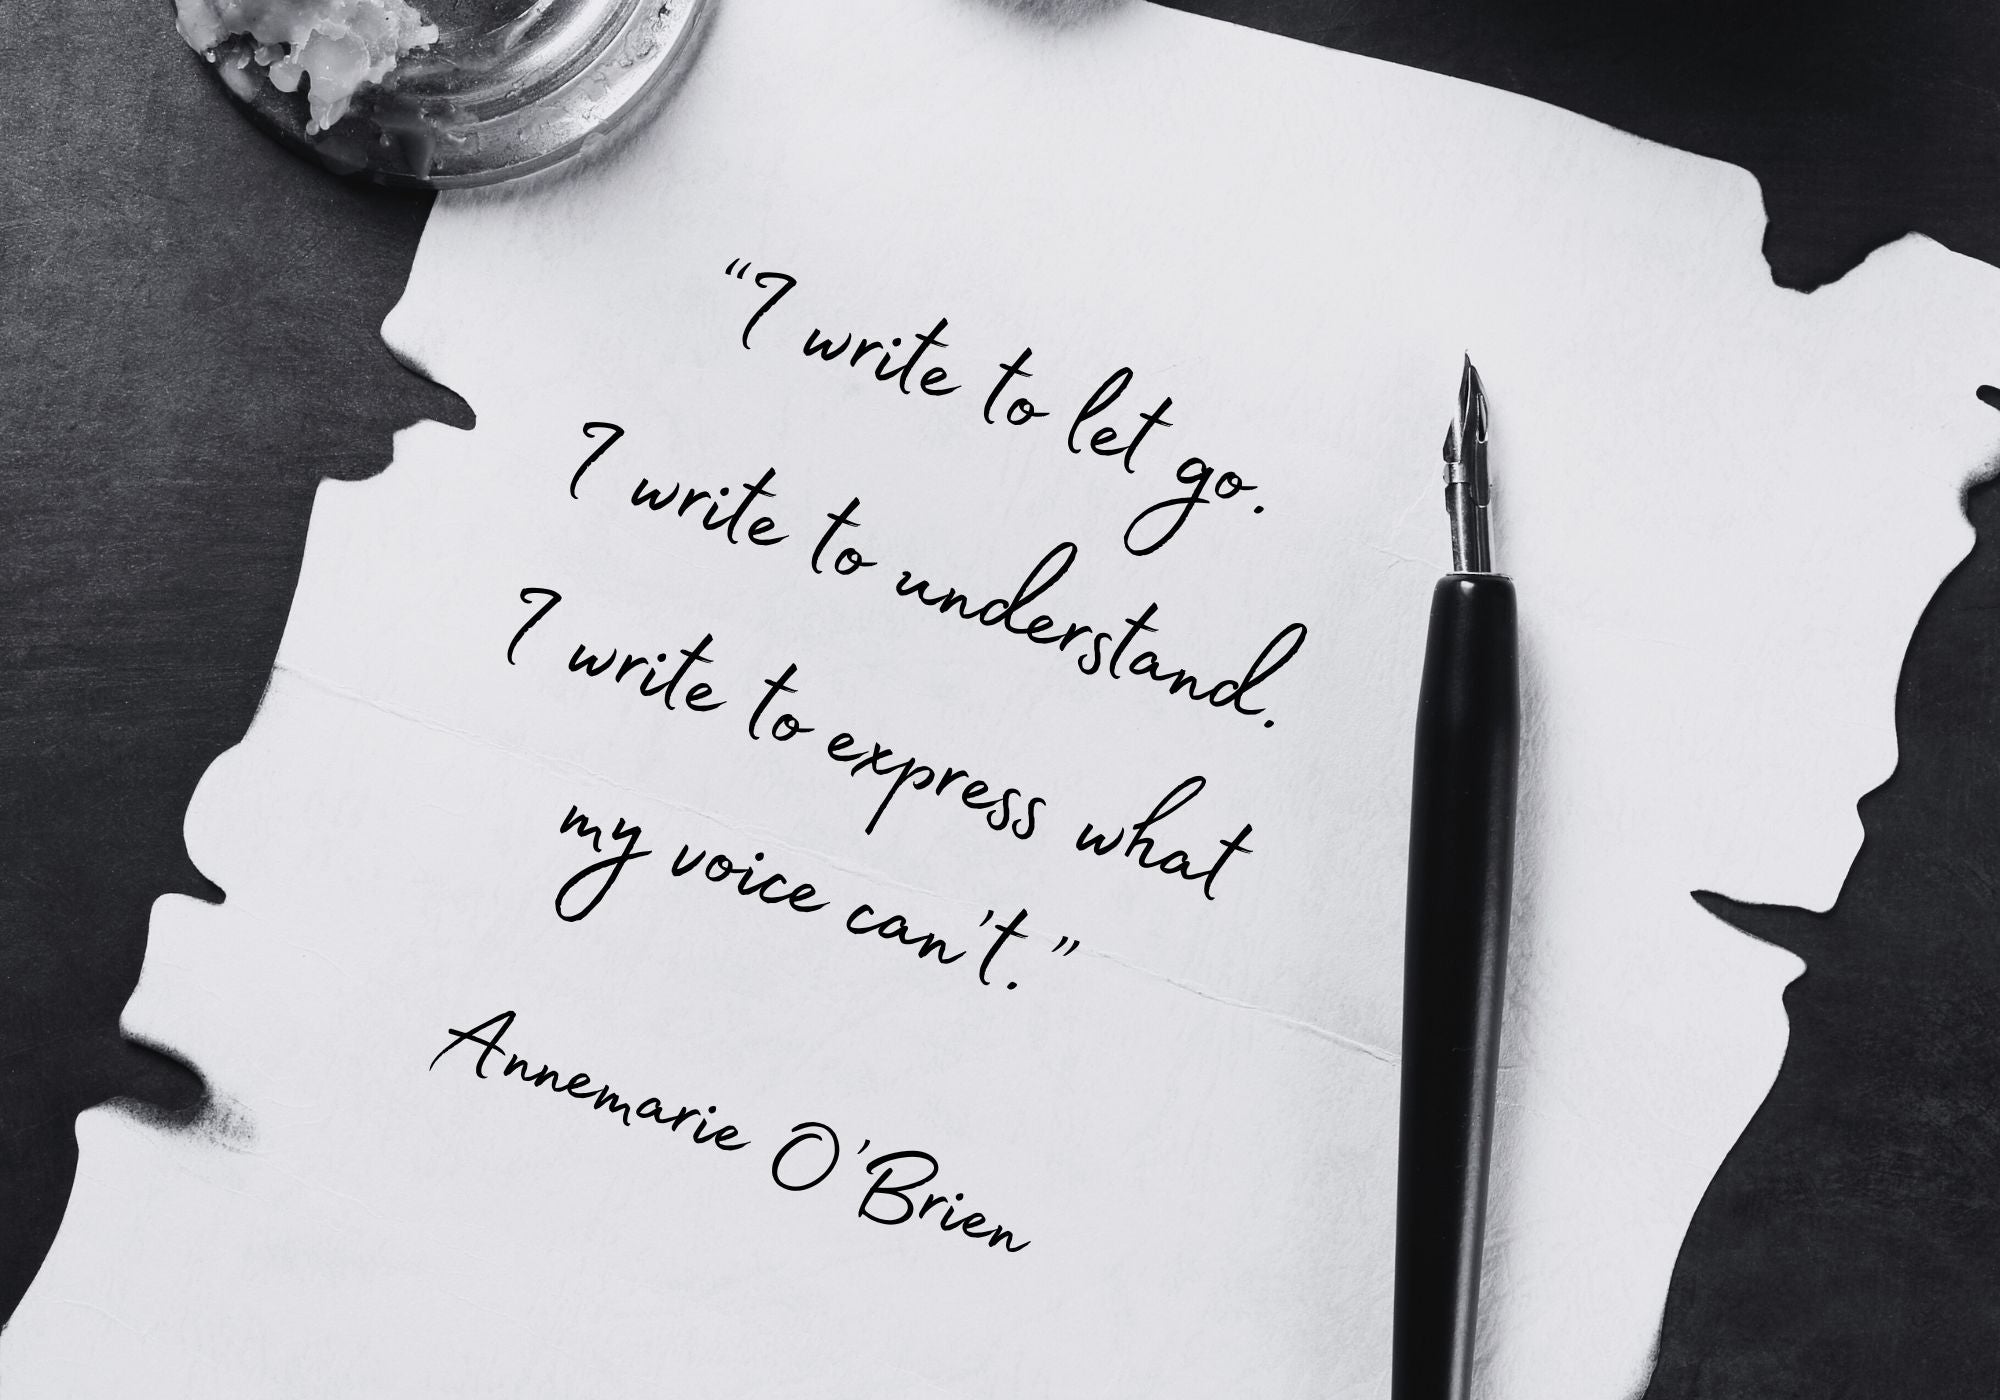 “I write to let go.
I write to understand.
I write to express what
my voice can't.”
Annemarie O'Brien